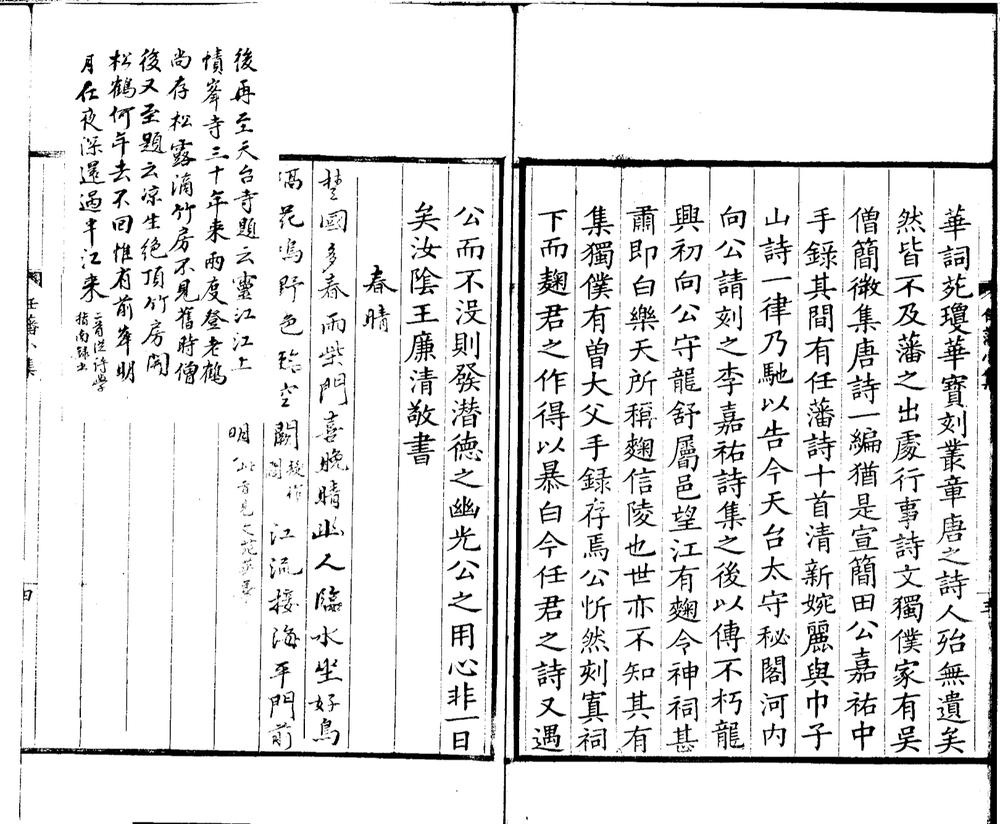 華詞苑瓊華寶刻叢章唐之詩人殆無遺矣
然皆不及藩之出處行事詩文獨僕家有吴
僧簡徵集唐詩一編猶是宣簡田公嘉祐中
手錄其間有任藩詩十首清新婉麗與巾子
山詩一律乃馳以告今天台太守秘閣河内
向公請刻之李嘉祐詩集之後以傳不朽龍
興初向公守龍舒屬邑望江有麴令神祠甚
肅即白樂天所稱麴信陵也世亦不知其有
集獨僕有曽大父手録存焉公忻然刻寘祠
下而麹君之作得以暴白今任君之詩又遇
公而不没則發潜德之幽光公之用心非一日
矣汝陰王廉清敬書
春晴
楚國多春雨柴門喜晚晴幽人臨水坐好鳥
隔花鳴野色臨空闕江流接海平門前
明
後再至天台寺題云靈江江上
幘峯寺三十年来兩度登老鶴
尚存松露滴竹房不見舊時僧
後又至題云凉生絶頂竹房開
松鶴何年去不回惟有前峯明
月在夜深還過半江来
任藩小集
四